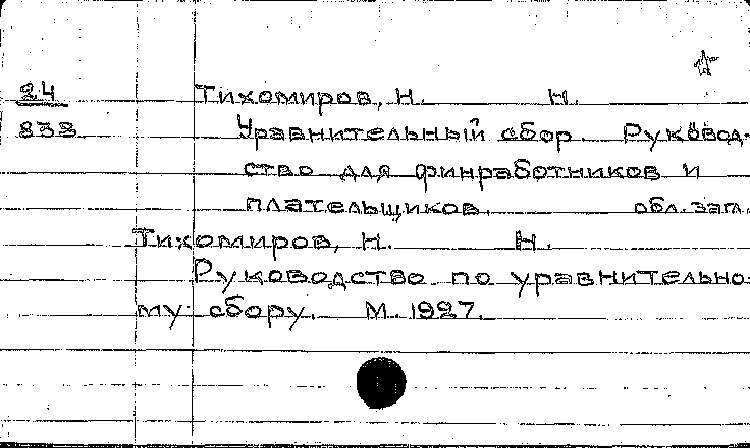 24 Тихомиров, Н. Н.
833 Уравнительный сбор. Руковод-
ство для финработников и
плательщиков. обл. загл.
Тихомиров, Н. Н.
Руководство по уравнительно-
му сбору. М. 1927.